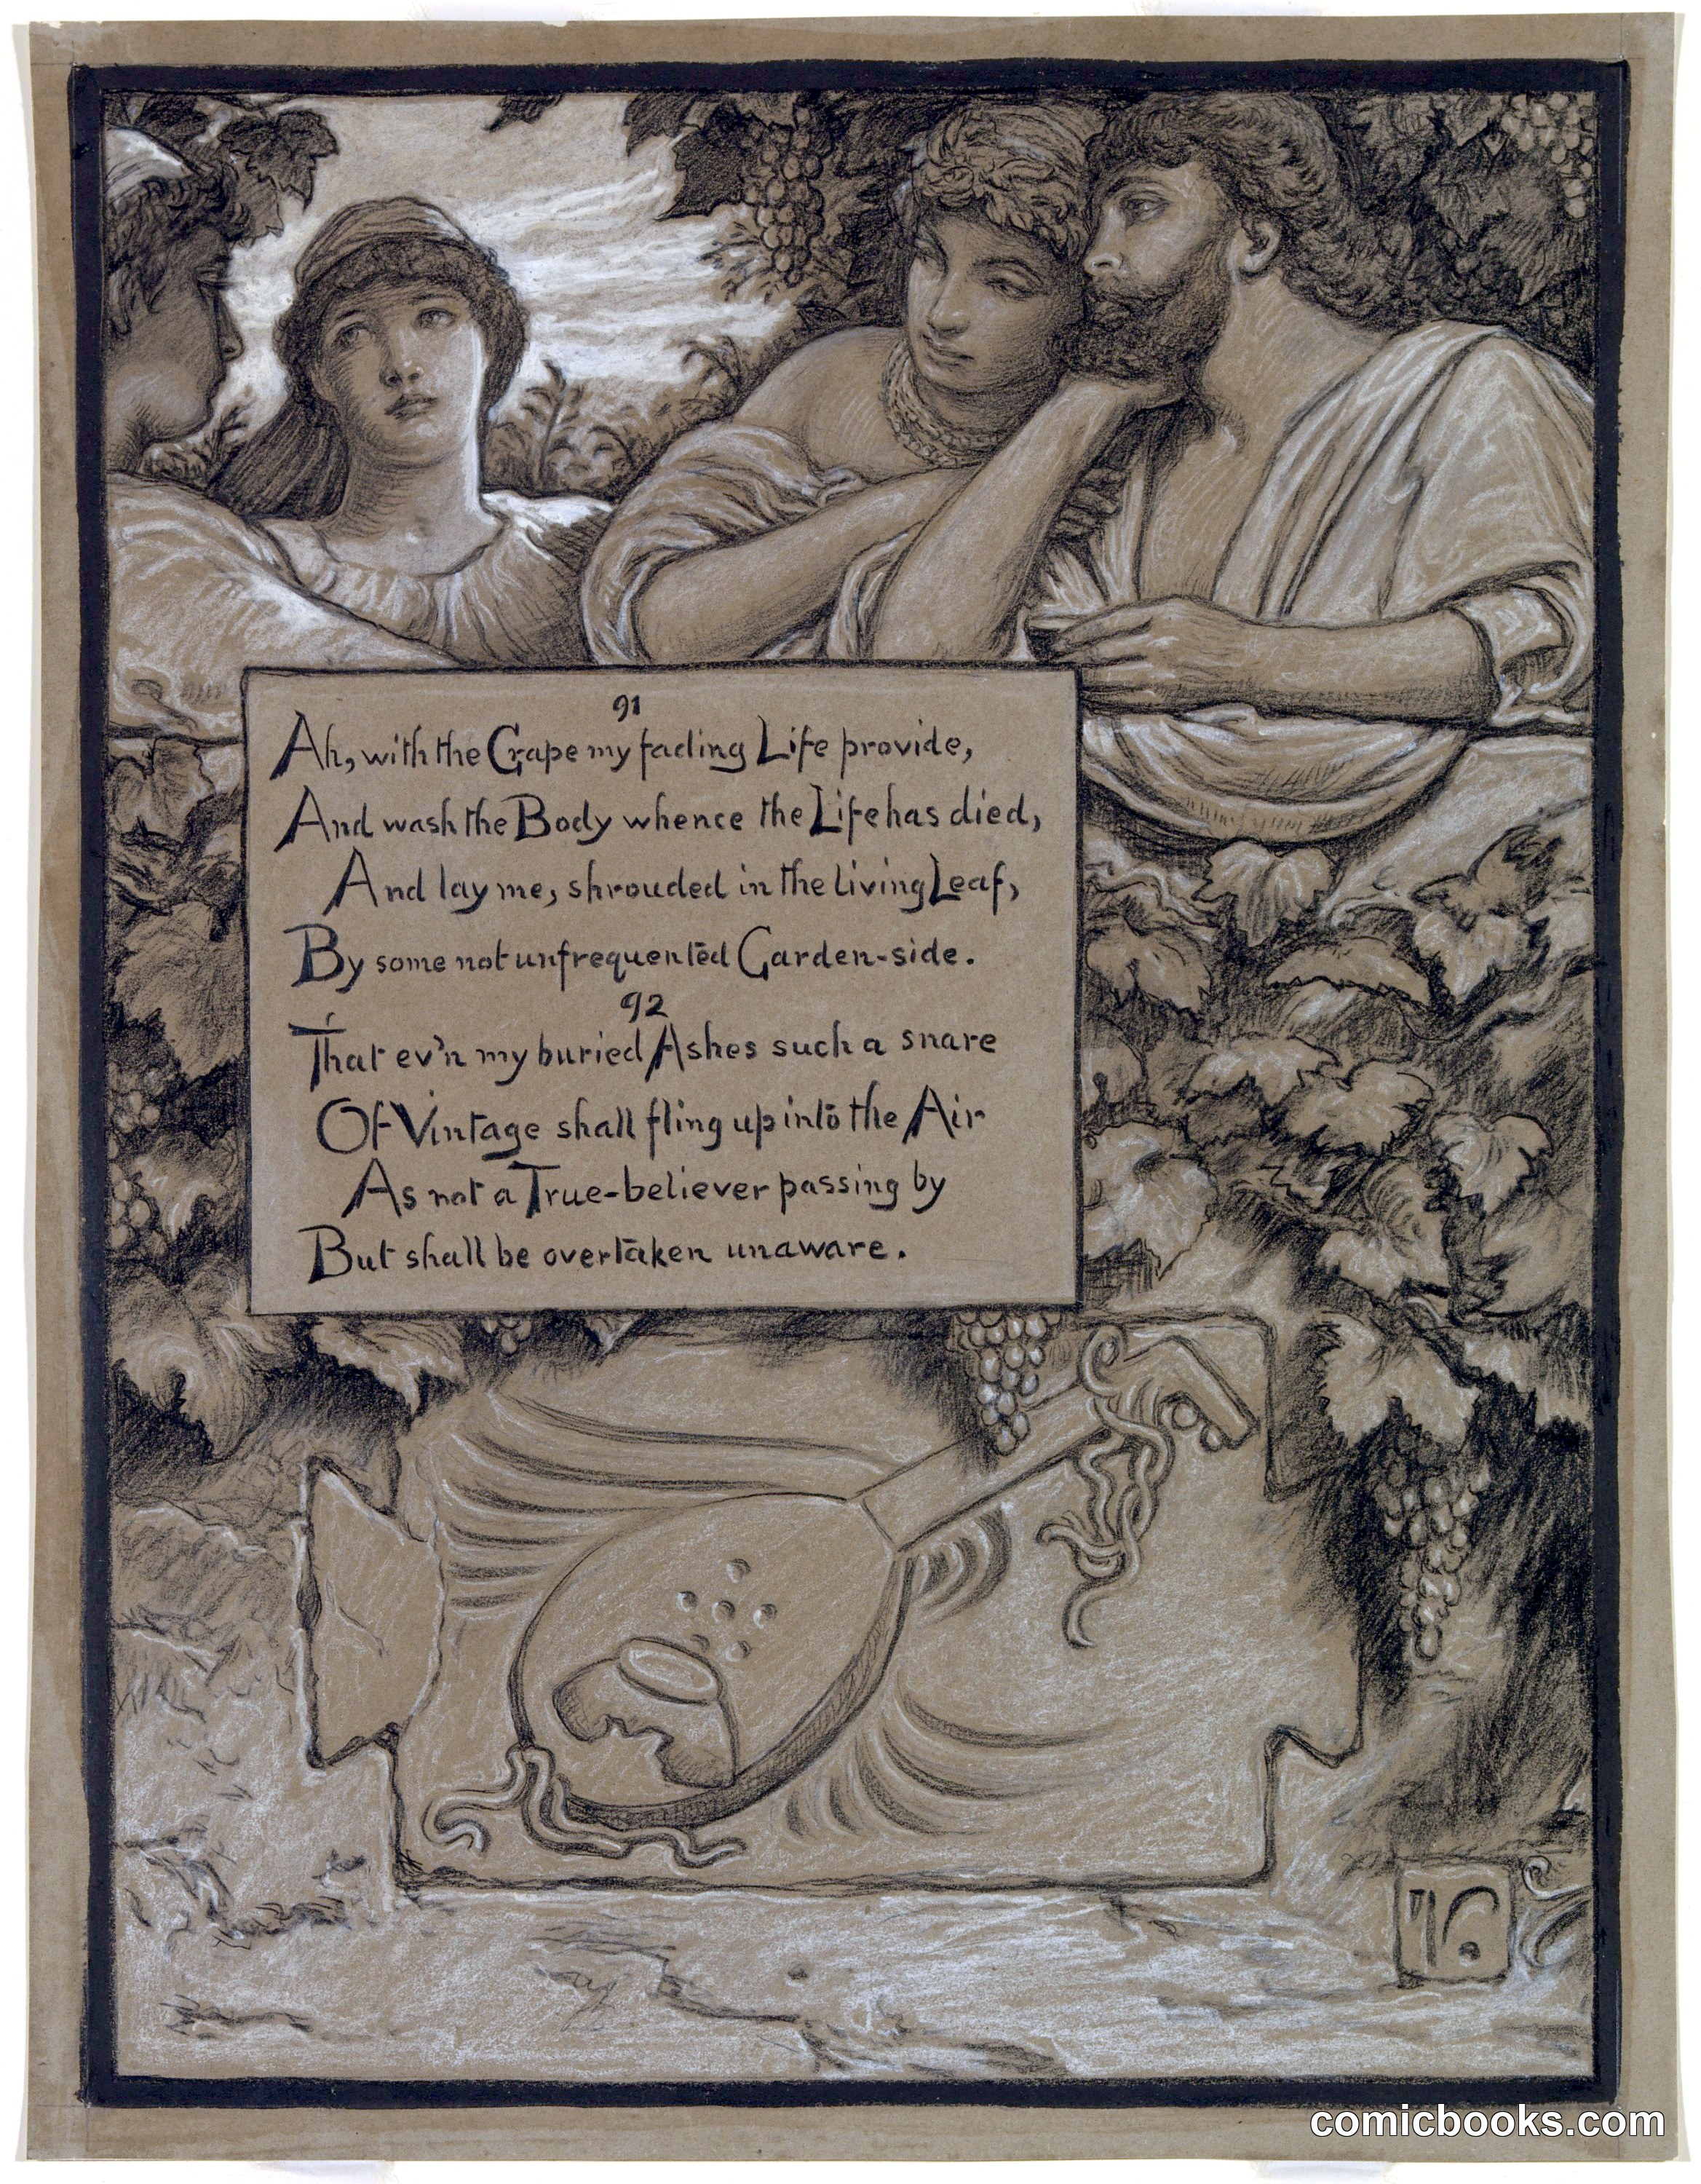 91
Ah, with the Grape my fading Life provide,
And wash the Body whence the Life has died,
And lay me, shrouded in the living Leaf,
By some not unfrequented Garden-side.
92
That ev'n my buried Ashes such a snare
Of Vintage shall fling up into the Air
As not a True-believer passing by
But shall be overtaken unaware.
comicbooks.com